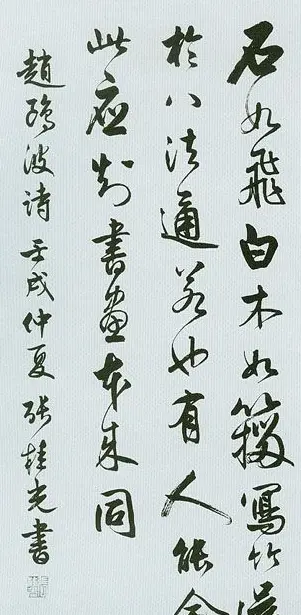 石如飛白木如籀寫竹
於八法通若也有人能
此應知書畫本來同
趙鷗波詩壬戌仲夏張桂光書